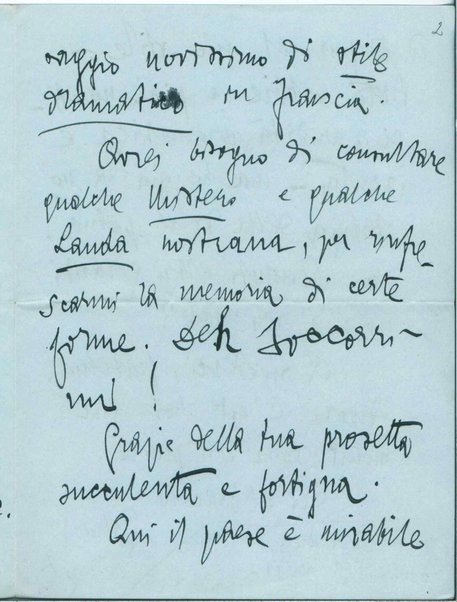 2
saggio novissimo di stile
dramatico in Francia.
Avrei bisogno di consultare
qualche Mistero e qualche
Lauda nostrana, per rinfe-
scarmi la memoria di certe
forme. Deh soccorri-
mi!
Grazie della tua prosetta
succulenta e fortigna.
Qui il paese è mirabile